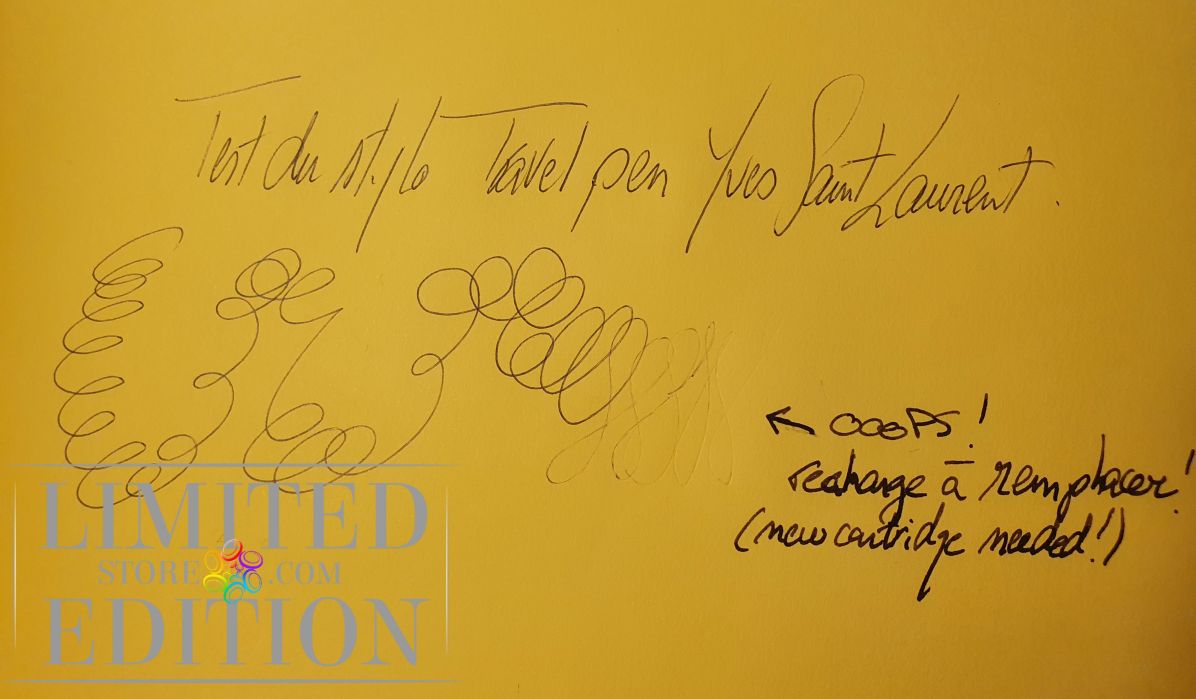 Test du stylo Travel pen Yves Saint Laurent.
← OOOPS !
recharge à remplacer !
(new cartridge needed !)
LIMITED
STORE .COM
EDITION